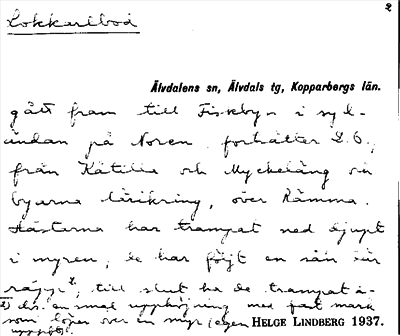 Lokkarlbod
2
Älvdalens sn, Älvdals tg, Kopparbergs län.
gått fram till Fiskbyn i syd-
ändan på Noren, forsätter L.O.,
från Kåtilla och Myckeläng
byarna häromkring, över Rämma.
Hästarna har trampat ned djupt
i myren, de har följt en sån där
till slut ha de trampat
1) dvs. en smal upphöjning med fast mark
som löper över en myr
HELGE LINDBERG 1937.